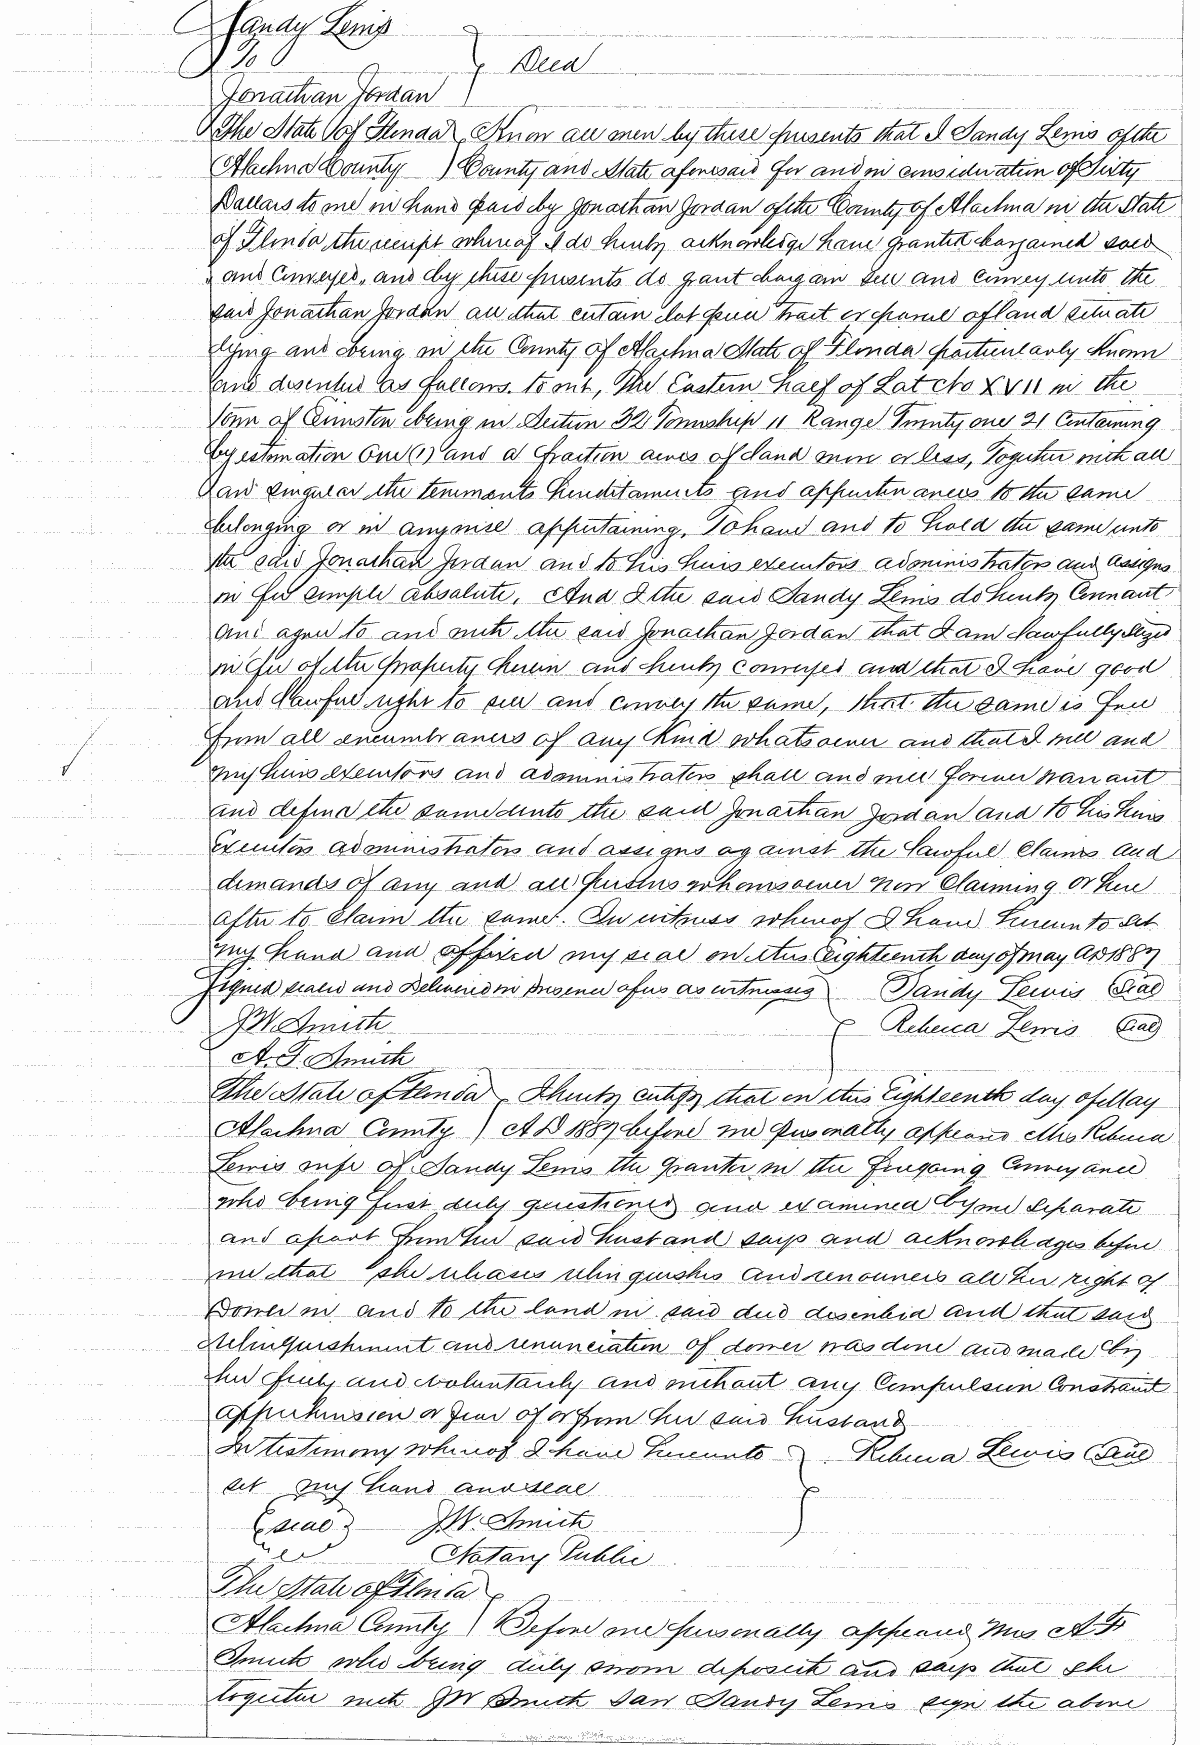 Sandy Lewis
To
Deed
Jonathan Jordan
The State of Florida Know all men by these presents that I Sandy Lewis of the
Alachua County ) County and State aforesaid for and in consideration of Sixty
Dollars to me in hand paid by Jonathan Jordan of the County of Alachua in the State
of Florida the receipt whereof I do hereby acknowledge have granted bargained sold
and conveyed, and by these presents do grant bargain sell and convey unto the
said Jonathan Jordan all that certain lot piece tract or parcel of land situate
lying and being in the County of Alachua State of Florida particularly known
and described as follows. to wit, The Eastern half of Lot No XVII in the
town of being in Section 32 Township 11 Range Twenty one 21 Containing
by estimation One (1) and a fraction acres of land more or less, Together with all
and singular the tenements hereditaments and appurtenances to the same
belonging or in anywise appertaining, To have and to hold the same unto
the said Jonathan Jordan and to his heirs executors administrators and assigns
in fee simple absolute, And I the said Sandy Lewis do hereby Covenant
and agree to and with the said Jonathan Jordan that I am lawfully
in fee of the property herein and hereby conveyed and that I have good
and lawful right to sell and convey the same, that the same is free
from all encumbrances of any kind whatsoever and that I will and
my heirs executors and administrators shall and will forever warrant
and defend the same unto the said Jonathan Jordan and to his heirs
executors administrators and assigns against the lawful claims and
demands of any and all persons whomsoever now claiming or here
after to claim the same. In witness whereof I have hereunto set
my hand and affixed my seal on this Eighteenth day of May AD 1887
Signed sealed and Delivered in presence of us as witnesses Sandy Lewis (Seal)
J.W. Smith Rebecca Lewis (Seal)
A. F. Smith
The State of Florida I hereby certify that on this Eighteenth day of May
Alachua County ) AD 1887 before me personally appeared Mrs Rebecca
Lewis wife of Sandy Lewis the grantor in the foregoing Conveyance
who being first duly questioned and examined by me Separate
and apart from her said husband says and acknowledges before
me that she releases relinquishes and renounces all her right of
Dower in and to the land in said deed described and that said
relinquishment and renunciation of dower was done and made by
her freely and voluntarily and without any Compulsion Constraint
apprehension or fear of or from her said husband
In testimony whereof I have hereunto Rebecca Lewis (Seal
set my hand and seal
(seal) J.W. Smith
Notary Public
The State of Florida
Alachua County ) Before me personally appeared Mrs A F
Smith who being duly sworn deposeth and says that she
together with JW Smith saw Sandy Lewis sign the above